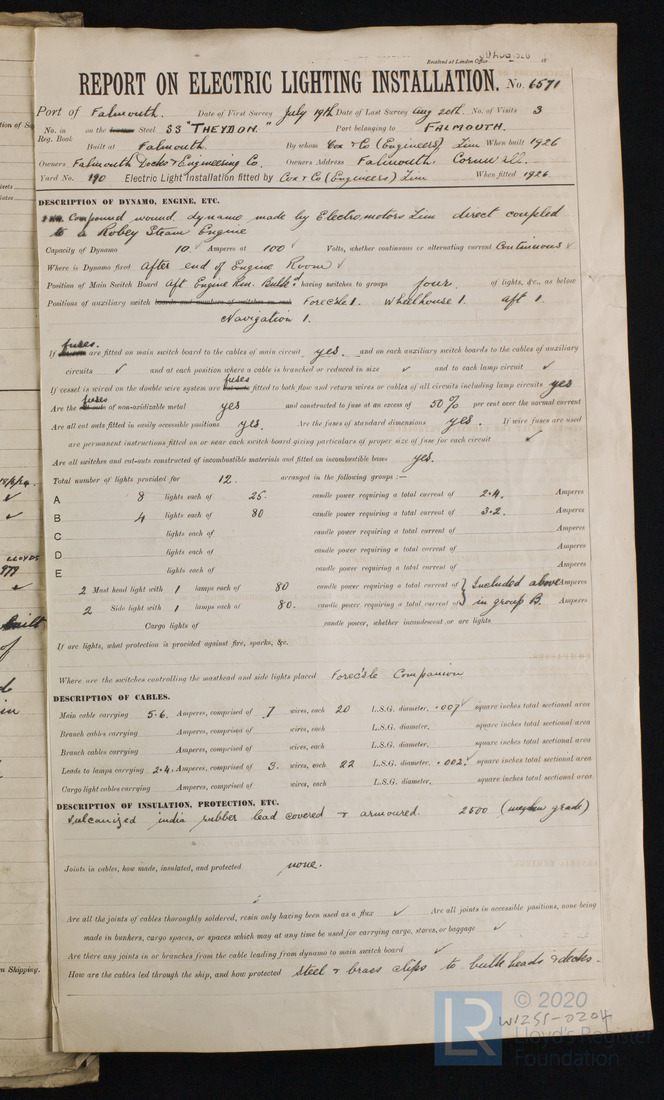 Received at London Office 30 AUG 1926 18
REPORT ON ELECTRIC LIGHTING INSTALLATION. No. 6571
Port of Falmouth. Date of First Survey July 19th Date of Last Survey Aug 20th. No. of Visits 3
No. in Reg. Book on the Steel SS "THEYDON." Port belonging to FALMOUTH.
Built at Falmouth. By whom Cox & Co (Engineers) Lim When built 1926
Owners Falmouth Docks & Engineering Co. Owners Address Falmouth. Cornwall.
Yard No. 190 Electric Light Installation fitted by Cox & Co (Engineers) Lim When fitted 1926.
DESCRIPTION OF DYNAMO, ENGINE, ETC.
Compound wound dynamo made by Electromotors Lim direct coupled
to a Robey Steam Engine
Capacity of Dynamo 10 ✓ Amperes at 100 ✓ Volts, whether continuous or alternating current Continuous ✓
Where is Dynamo fixed After end of Engine Room ✓
Position of Main Switch Board Aft Engine Rm. Bulkd having switches to groups four of lights, &c., as below
Positions of auxiliary switch boards and numbers of switches on each Forecsle 1. Wheelhouse 1. aft 1.
Navigation 1.
fuses.
If are fitted on main switch board to the cables of main circuit yes. and on each auxiliary switch boards to the cables of auxiliary
circuits ✓ and at each position where a cable is branched or reduced in size ✓ and to each lamp circuit ✓
If vessel is wired on the double wire system are cut outs fuses fitted to both flow and return wires or cables of all circuits including lamp circuits yes
Are the cut outs fuses of non-oxidizable metal yes and constructed to fuse at an excess of 50% per cent over the normal current
Are all cut outs fitted in easily accessible positions yes. Are the fuses of standard dimensions yes. If wire fuses are used
are permanent instructions fitted on or near each switch board giving particulars of proper size of fuse for each circuit ✓
Are all switches and cut-outs constructed of incombustible materials and fitted on incombustible bases yes.
Total number of lights provided for 12. arranged in the following groups :—
A 8 lights each of 25 candle power requiring a total current of 2.4. Amperes
B 4 lights each of 80 candle power requiring a total current of 3.2. Amperes
C lights each of candle power requiring a total current of Amperes
D lights each of candle power requiring a total current of Amperes
E lights each of candle power requiring a total current of Amperes
2 Mast head light with 1 lamps each of 80 candle power requiring a total current of } Included above Amperes
2 Side light with 1 lamps each of 80. candle power requiring a total current of in group B. Amperes
Cargo lights of candle power, whether incandescent or arc lights
If arc lights, what protection is provided against fire, sparks, &c.
Where are the switches controlling the masthead and side lights placed Forec'sle Companion
DESCRIPTION OF CABLES.
Main cable carrying 5.6. Amperes, comprised of 7 wires, each 20 L.S.G. diameter, .007 ✓ square inches total sectional area
Branch cables carrying Amperes, comprised of wires, each L.S.G. diameter, square inches total sectional area
Branch cables carrying Amperes, comprised of wires, each L.S.G. diameter, square inches total sectional area
Leads to lamps carrying 2.4. Amperes, comprised of 3. wires, each 22 L.S.G. diameter, .002. ✓ square inches total sectional area
Cargo light cables carrying Amperes, comprised of wires, each L.S.G. diameter, square inches total sectional area
DESCRIPTION OF INSULATION, PROTECTION, ETC.
Vulcanized india rubber lead covered & armoured. 2500 (megohm grade)
Joints in cables, how made, insulated, and protected none.
Are all the joints of cables thoroughly soldered, resin only having been used as a flux ✓ Are all joints in accessible positions, none being
made in bunkers, cargo spaces, or spaces which may at any time be used for carrying cargo, stores, or baggage ✓
Are there any joints in or branches from the cable leading from dynamo to main switch board ✓
How are the cables led through the ship, and how protected Steel & brass clips to bulkheads & decks.
© 2020
W1255-0204
LR Lloyd's Register
Foundation